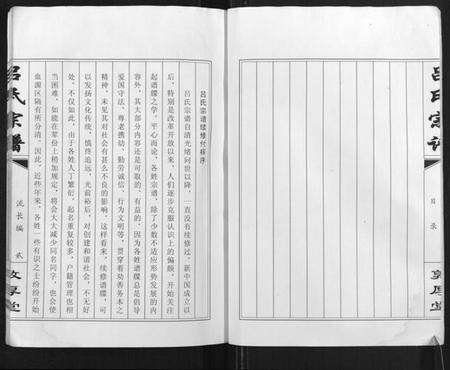 吕氏宗谱
目录
敦厚堂
吕氏宗谱续修付梓序
吕氏宗谱自清光绪问世以降，一直没有续修过，新中国成立以
后，特别是改革开放以来，人们逐步克服认识上的偏颇，开始关注
起谱牒之学。平心而论，各姓宗谱，除了少数不适应形势发展的内
容外，其大部分内容还是可取的，有益的，因为各姓谱牒总是倡导
爱国守法，尊老携幼，勤劳诚信，行为文明等，贯穿着劝善务本之
精神，未见其对社会有甚么不良的影响，这样看来，续修谱牒，可
以发扬文化传统，慎终追远，光前裕后，对创建和谐社会，不无好
处。不仅如此，由于各姓人丁繁衍，起名重复较多，户籍管理也相
当困难，如能在辈份上稍加规定，将会大大减少同名同字，也会使
血源区隔有所分清。因此，近些年来，各姓一些有识之士纷纷开始
吕氏宗谱
流长编
贰
敦厚堂